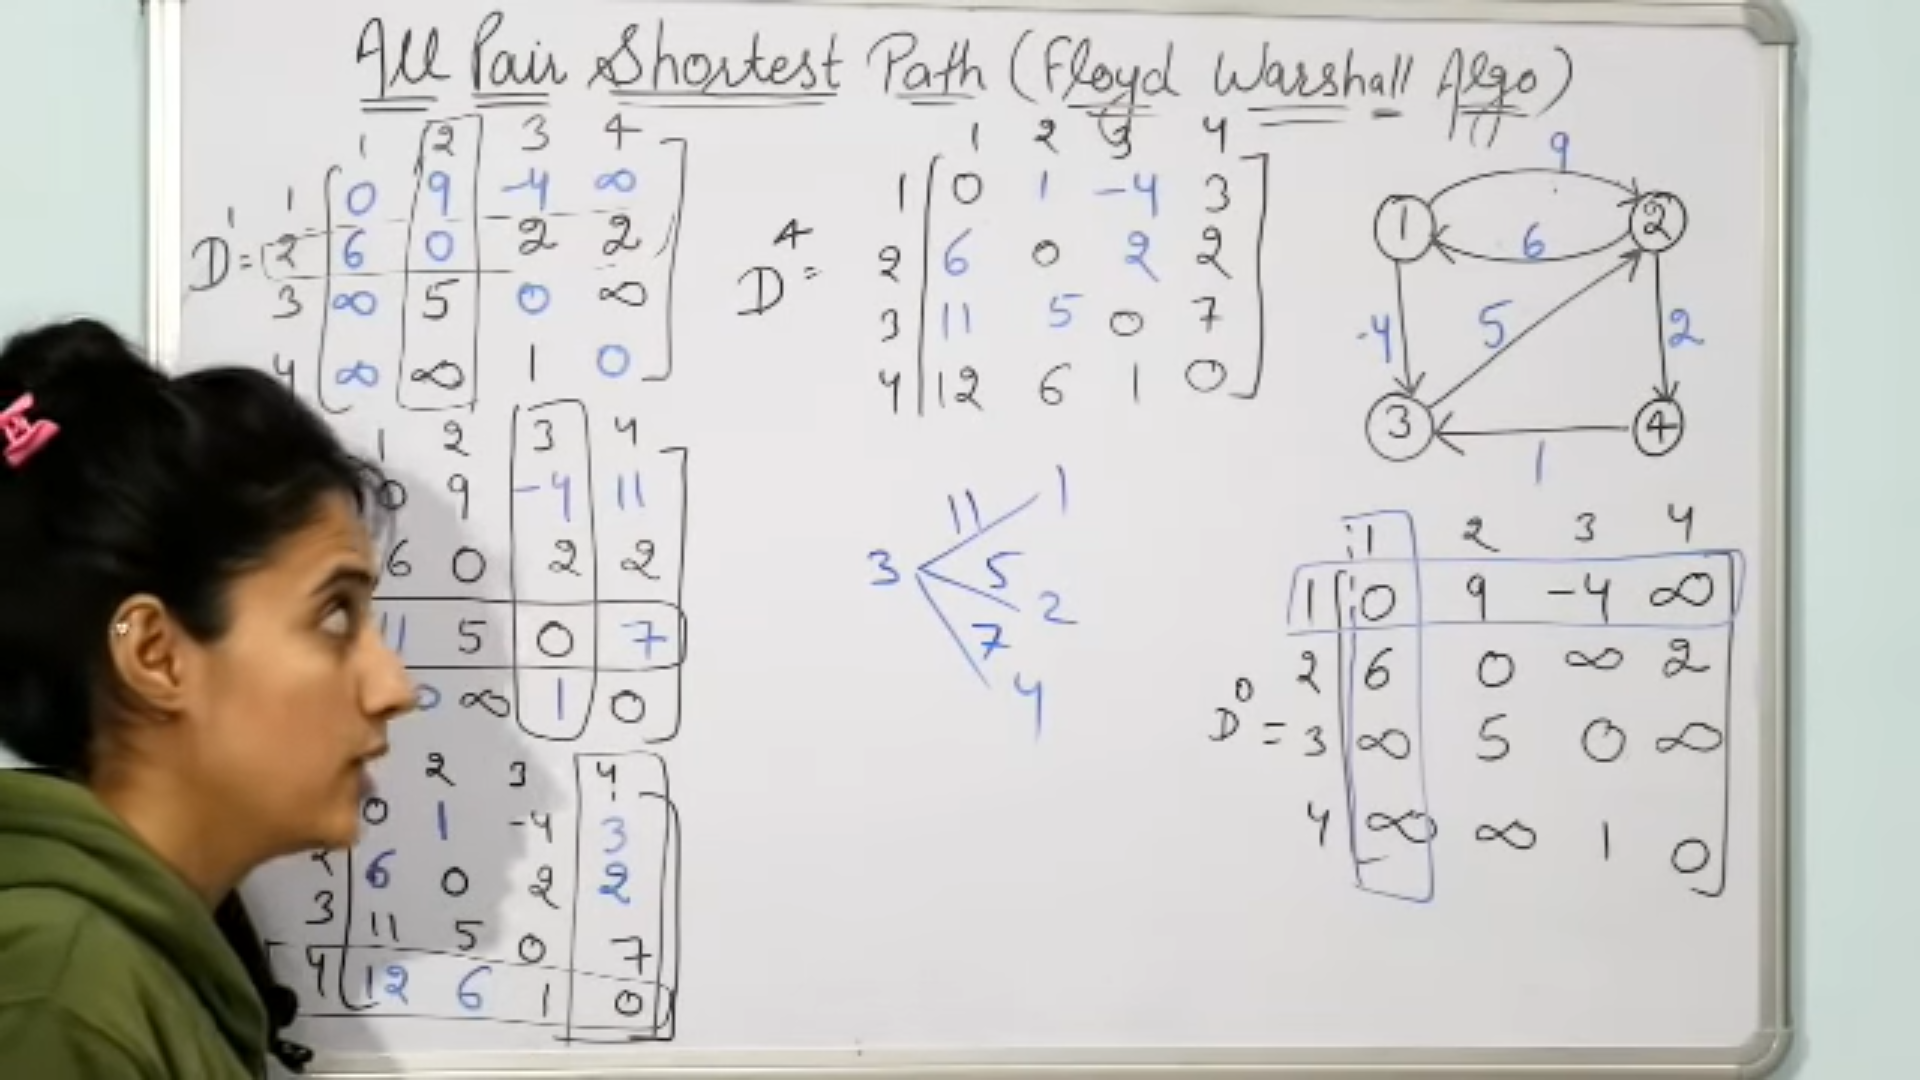 All Pair Shortest Path (Floyd Warshall Algo)
1 2 3 4
1 0 9 -4 ∞
D¹ = 2 6 0 2 2
3 ∞ 5 0 ∞
4 ∞ ∞ 1 0
1 2 3 4
0 9 -4 11
6 0 2 2
11 5 0 7
∞ 1 0
2 3 4
0 1 -4 3
2 6 0 2 2
3 11 5 0 7
4 12 6 1 0
1 2 3 4
1 0 1 -4 3
D⁴ = 2 6 0 2 2
3 11 5 0 7
4 12 6 1 0
11 1
3 5 2
7 4
9
1 2
6
-4 5 2
3 4
1
1 2 3 4
1 0 9 -4 ∞
2 6 0 ∞ 2
D⁰ = 3 ∞ 5 0 ∞
4 ∞ ∞ 1 0